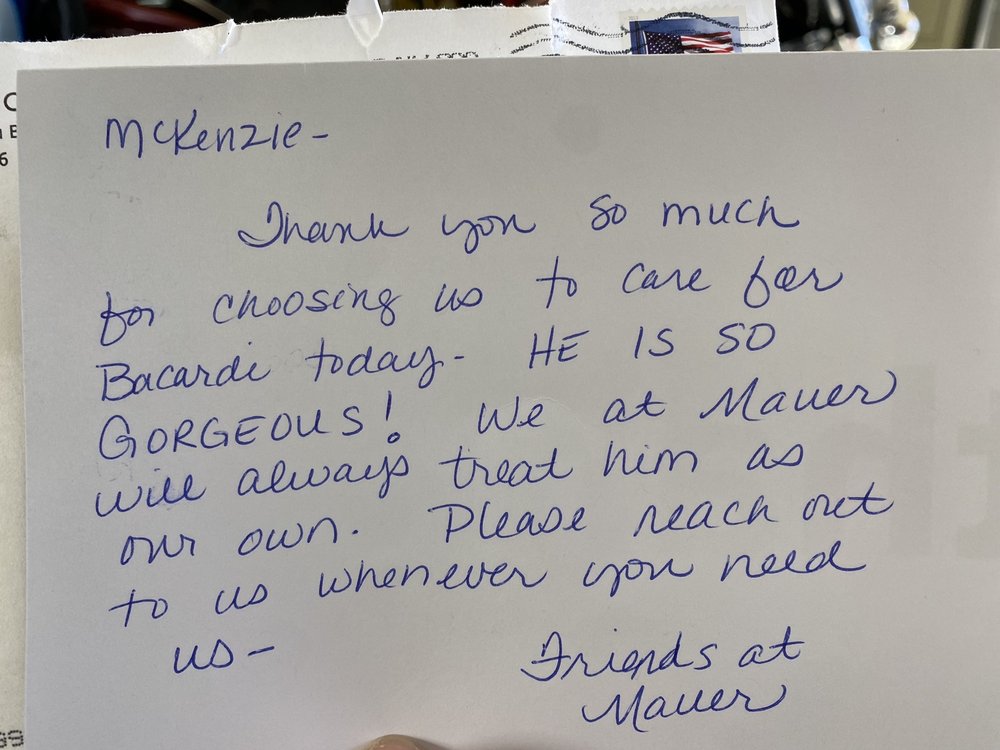 McKenzie-
Thank you so much
for choosing us to care for
Bacardi today- HE IS SO
GORGEOUS! We at Mauer
will always treat him as
our own. Please reach out
to us whenever you need
us-
Friends at
Mauer